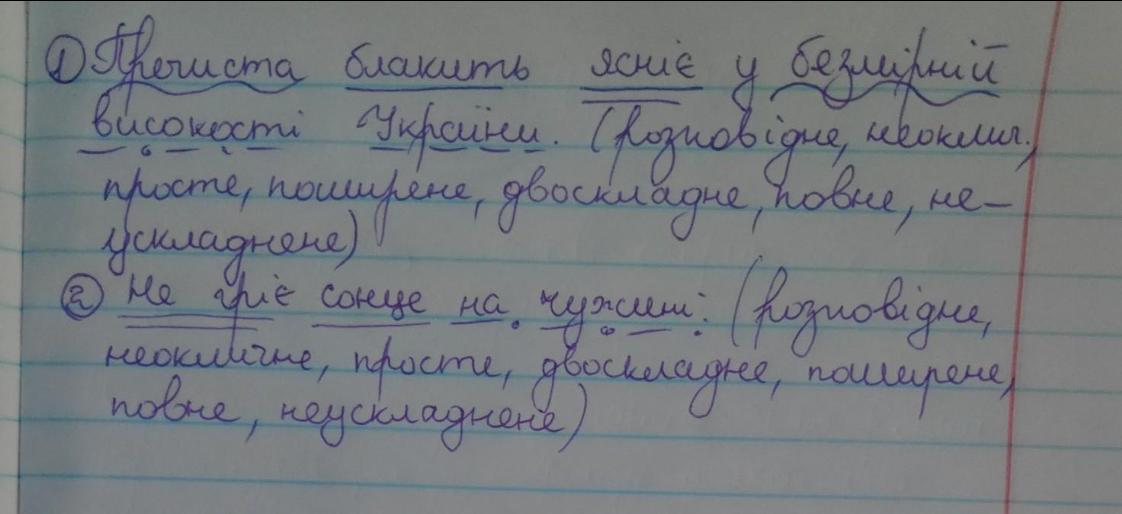 ① Пречиста блакить ясніє у безмірній
високості України. (розповідне, неоклич.,
просте, поширене, двоскладне, повне, не-
ускладнене)
② Не гріє сонце на чужині. (розповідне,
неокличне, просте, двоскладне, поширене,
повне, неускладнене)